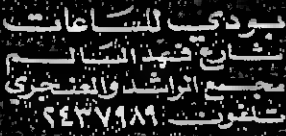 بودي للساعات
شارع فهد السالم
مجمع الراشد والعنجري
تلفون: ٢٤٣٧٩٨٩